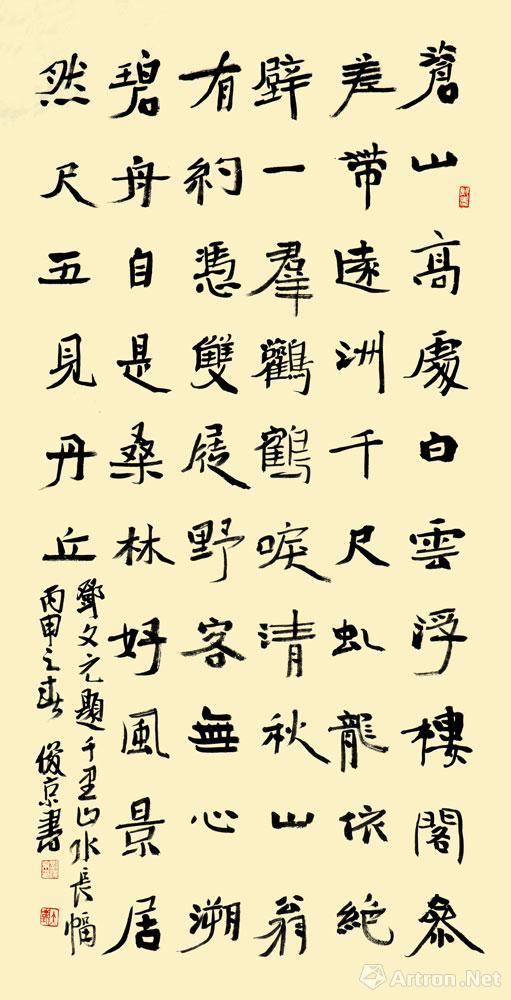 蒼山高處白雲浮樓閣參
差帶遠洲千尺虬龍依絕
壁一羣鸛鶴唳清秋山翁
有約憑雙屐野客無心溯
碧舟自是桑林好風景居
然尺五見丹丘
鄧文元題千里山水長幅
丙申之春 俊京書
Artron.Net